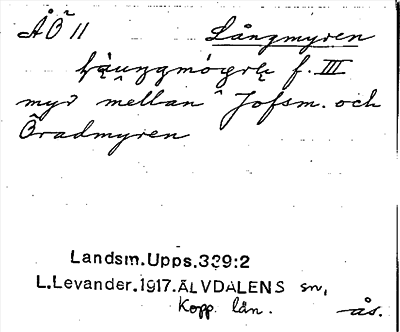 ÅÖ 11 Långmyren
f. III
myr mellan Jofsm. och
Öradmyren
Landsm.Upps.339:2
L.Levander.1917.ÄLVDALENS sn,
Kopp. län. ås.